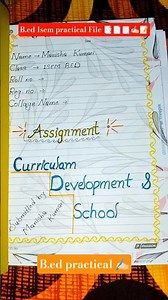 B.ed Isem practical File
Name → Manisha Kumari
Class → 1sem B.ED
Roll no →
Reg. no →
Collage Name →
Assignment
Curriculam
Development &
School
Submitted by
Manisha
Kumari
B.ed practical